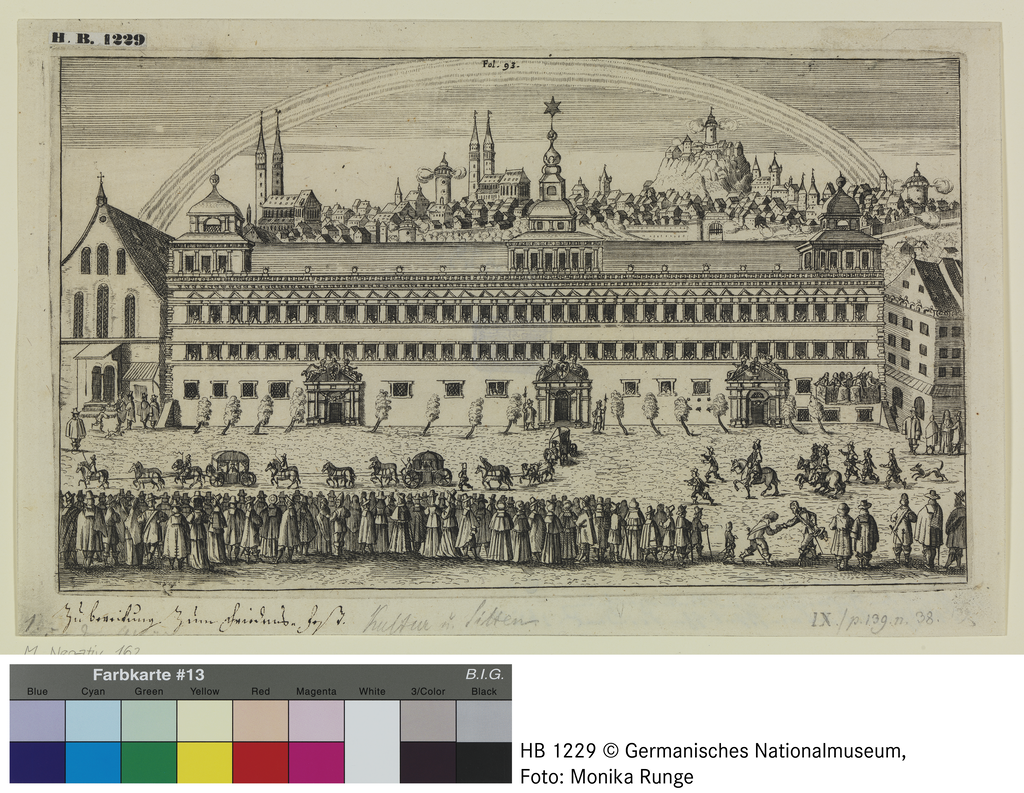 H. B. 1229
Fol. 93.
Zu bereitung Zum Friedens-Fest. Kultur u. Sitten
IX. / p. 139. n. 38.
M. Negativ 162
Farbkarte #13
B.I.G.
Blue Cyan Green Yellow Red Magenta White 3/Color Black
HB 1229 © Germanisches Nationalmuseum,
Foto: Monika Runge